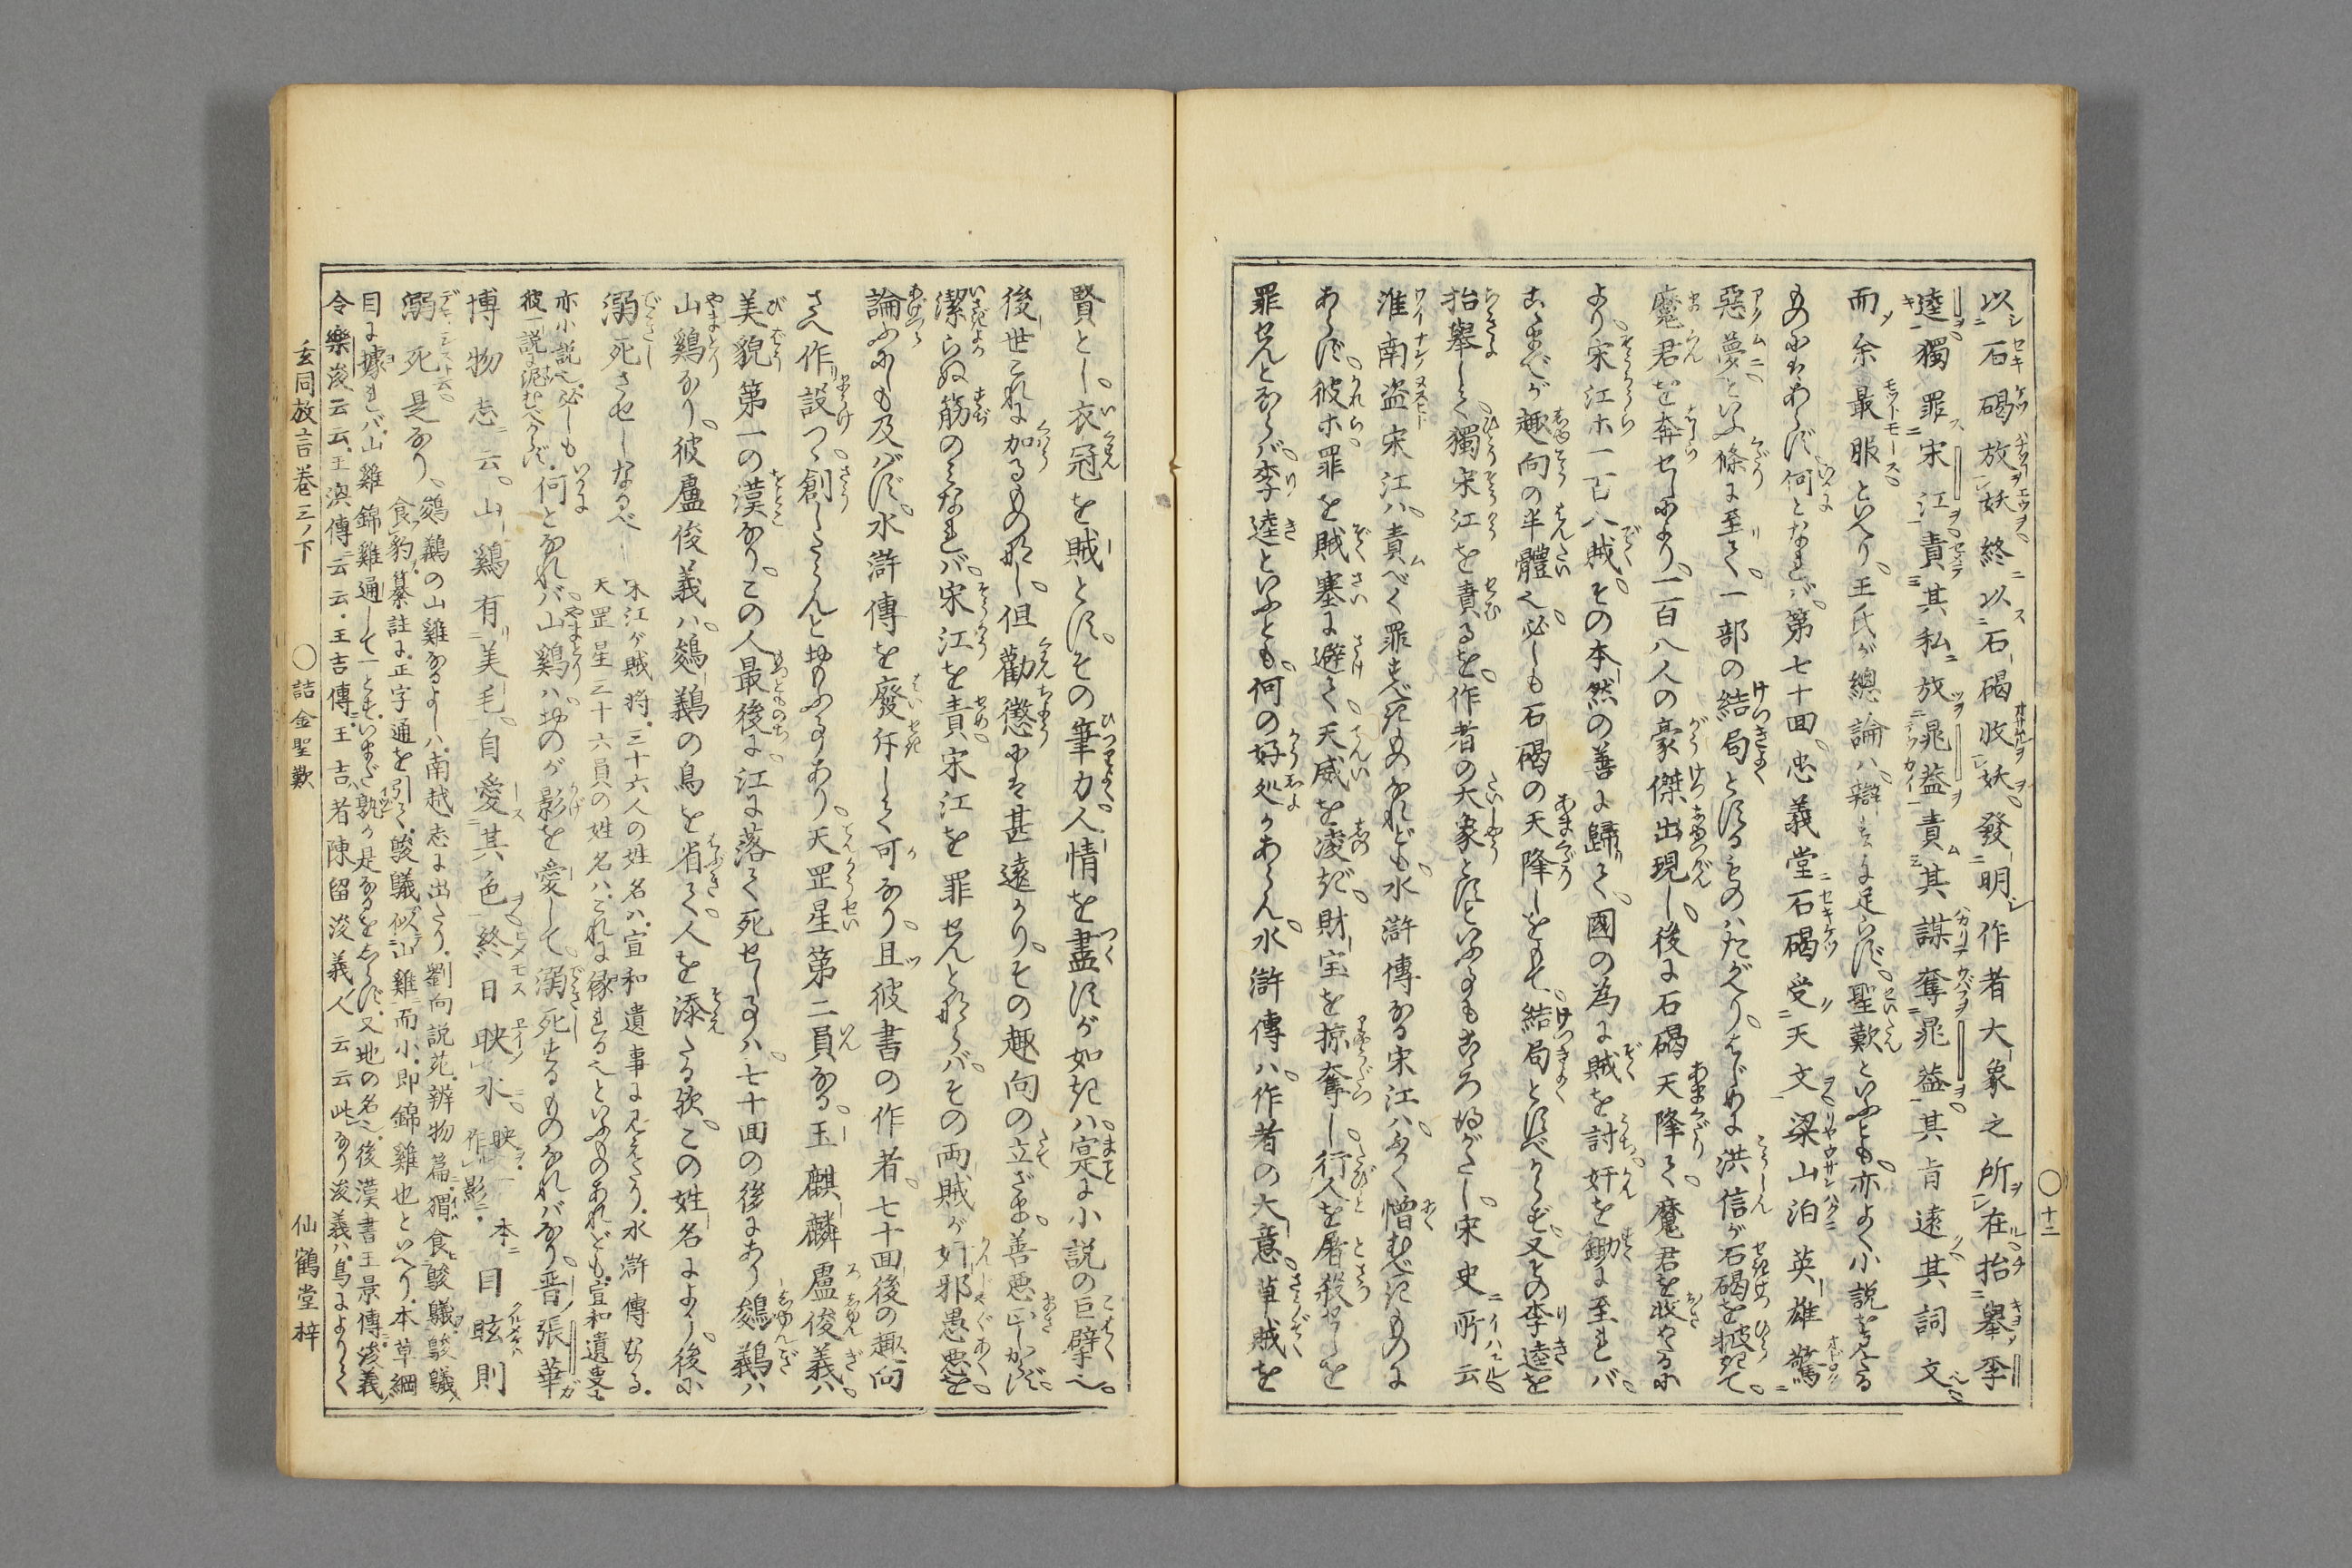 以石碣放妖終以石碣收妖發明作者大象之所在抬舉李
逵獨罪宋江責其私放晁蓋責其謀奪晁蓋其肯遠其詞文
而余最服といへり。王氏が總論ハ辯ずるに足らず。聖歎といふとも。亦よく小説を見る
ものにはあらず。何となれバ。第七十回。忠義堂石碣受天文。梁山泊英雄驚
惡夢といふ條に至りて。一部の結局とするものハたがへり。はじめに洪信が石碣を披きて。
魔君を奔らせしにより。一百八人の豪傑出現し。後に石碣天降て。魔君を收めたるに
より。宋江ホ一百八賊。その本然の善に歸りて。國の為に賊を討。奸を鋤に至れバ。
こゝまでが趣向の半體也。必しも石碣の天降しをもて。結局とすべからず。又その李逵を
抬舉して。獨宋江を責るを。作者の大象とすといふ事もこゝろ得がたし。宋史所云
淮南盗宋江ハ。責べく罪すべきものなれども。水滸傳なる宋江ハ。ふかく憎むべきものに
あらず。彼ホ罪を賊塞に避て。天威を凌ぎ。財宝を掠奪し。行人を屠殺せしを
罪せんとならバ。李逵といふとも。何の好処かあらん。水滸傳ハ。作者の大意。草賊を
〇十二
賢とし。衣冠を賊とす。その筆力。人情を盡すが如きハ。寔に小説の巨擘也。
後世これに加るもの那し。但勸懲に至ては甚遠かり。その趣向の立ざま。善惡正しからず。
潔らぬ筋のみなれバ。宋江を責。宋江を罪せんと那らバ。その両賊が奸邪愚悪を
論ふにしも及バず。水滸傳を廢斥して可なり。且彼書の作者。七十回後の趣向
さへ作り設つゝ。創したらんとおもふ事あり。天罡星第二員なる。玉麒麟盧俊義ハ。
美貌第一の漢なり。この人最後に。江に落て死せし事ハ。七十回の後にあり。鵔鸃ハ
山鷄なり。彼盧俊義ハ。鵔鸃の鳥を省き。人を添たる歟。この姓名により。後に
溺死させしなるべし 宋江ガ賊将。三十六人の姓名ハ。宣和遺事に見えたり。水滸傳なる。
天罡星三十六員の姓名ハ。これに縁れる也といふものあれども。宣和遺事も
亦小説也。必しも
彼一説に泥むべからず。何となれバ。山鷄ハ。おのが影を愛して。溺死するものなれバなり。晋張華ガ
博物志云。山鷄有美毛。自愛其色。終日映水。映一本作影。目眩則
溺死。是なり。鵔鸃の山雞なるよしハ。南越志に出たり。劉向説苑。辨物篇。猬食鵔鸃。鵔鸃
食豹。纂註に。正字通を引て。鵔鸃似山雞而小。即錦雞也といへり。本草綱
目に據れバ。山雞錦雞通して一とす。いまだ孰か是なるをしらず。又地の名也。後漢書王景傳。浚義
令樂浚云云。王渙傳云云。王吉傳。王吉者陳留浚義人云云。此なり浚義ハ。鳥によりて
玄同放言巻三ノ下 〇詰金聖歎 仙鶴堂梓